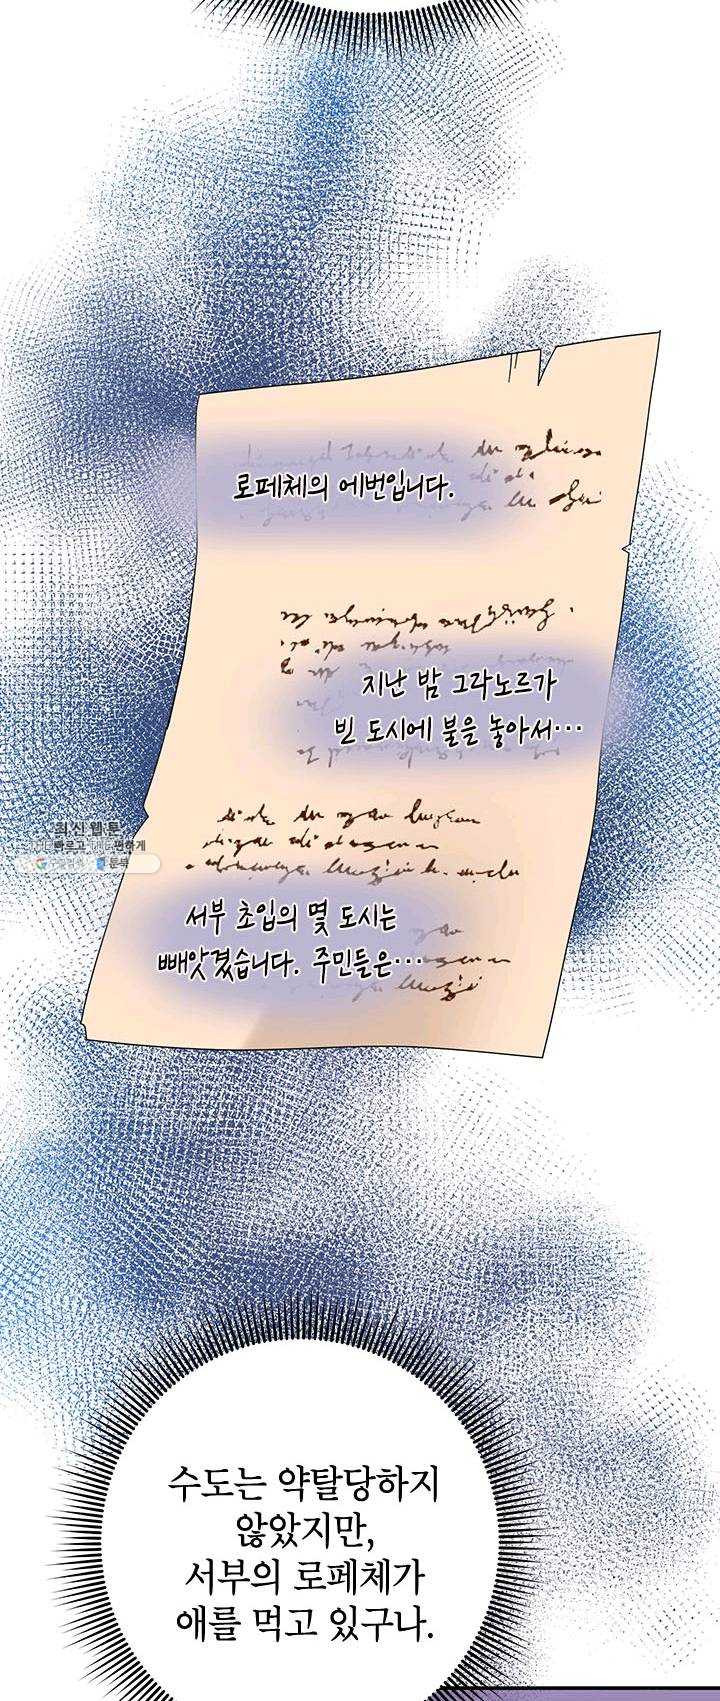 로페체의 에번입니다.
지난 밤 그라노르가
빈 도시에 불을 놓아서…
최신 웹툰
빠르고
편하게
툰부
서부 초입의 몇 도시는
빼앗겼습니다. 주민들은…
수도는 약탈당하지
않았지만,
서부의 로페체가
애를 먹고 있구나.